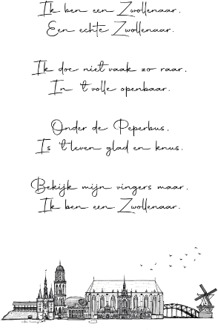 Ik ben een Zwollenaar.
Een echte Zwollenaar.
Ik doe niet vaak zo raar.
In 't volle openbaar.
Onder de Peperbus.
Is 't leven glad en knus.
Bekijk mijn vingers maar.
Ik ben een Zwollenaar.